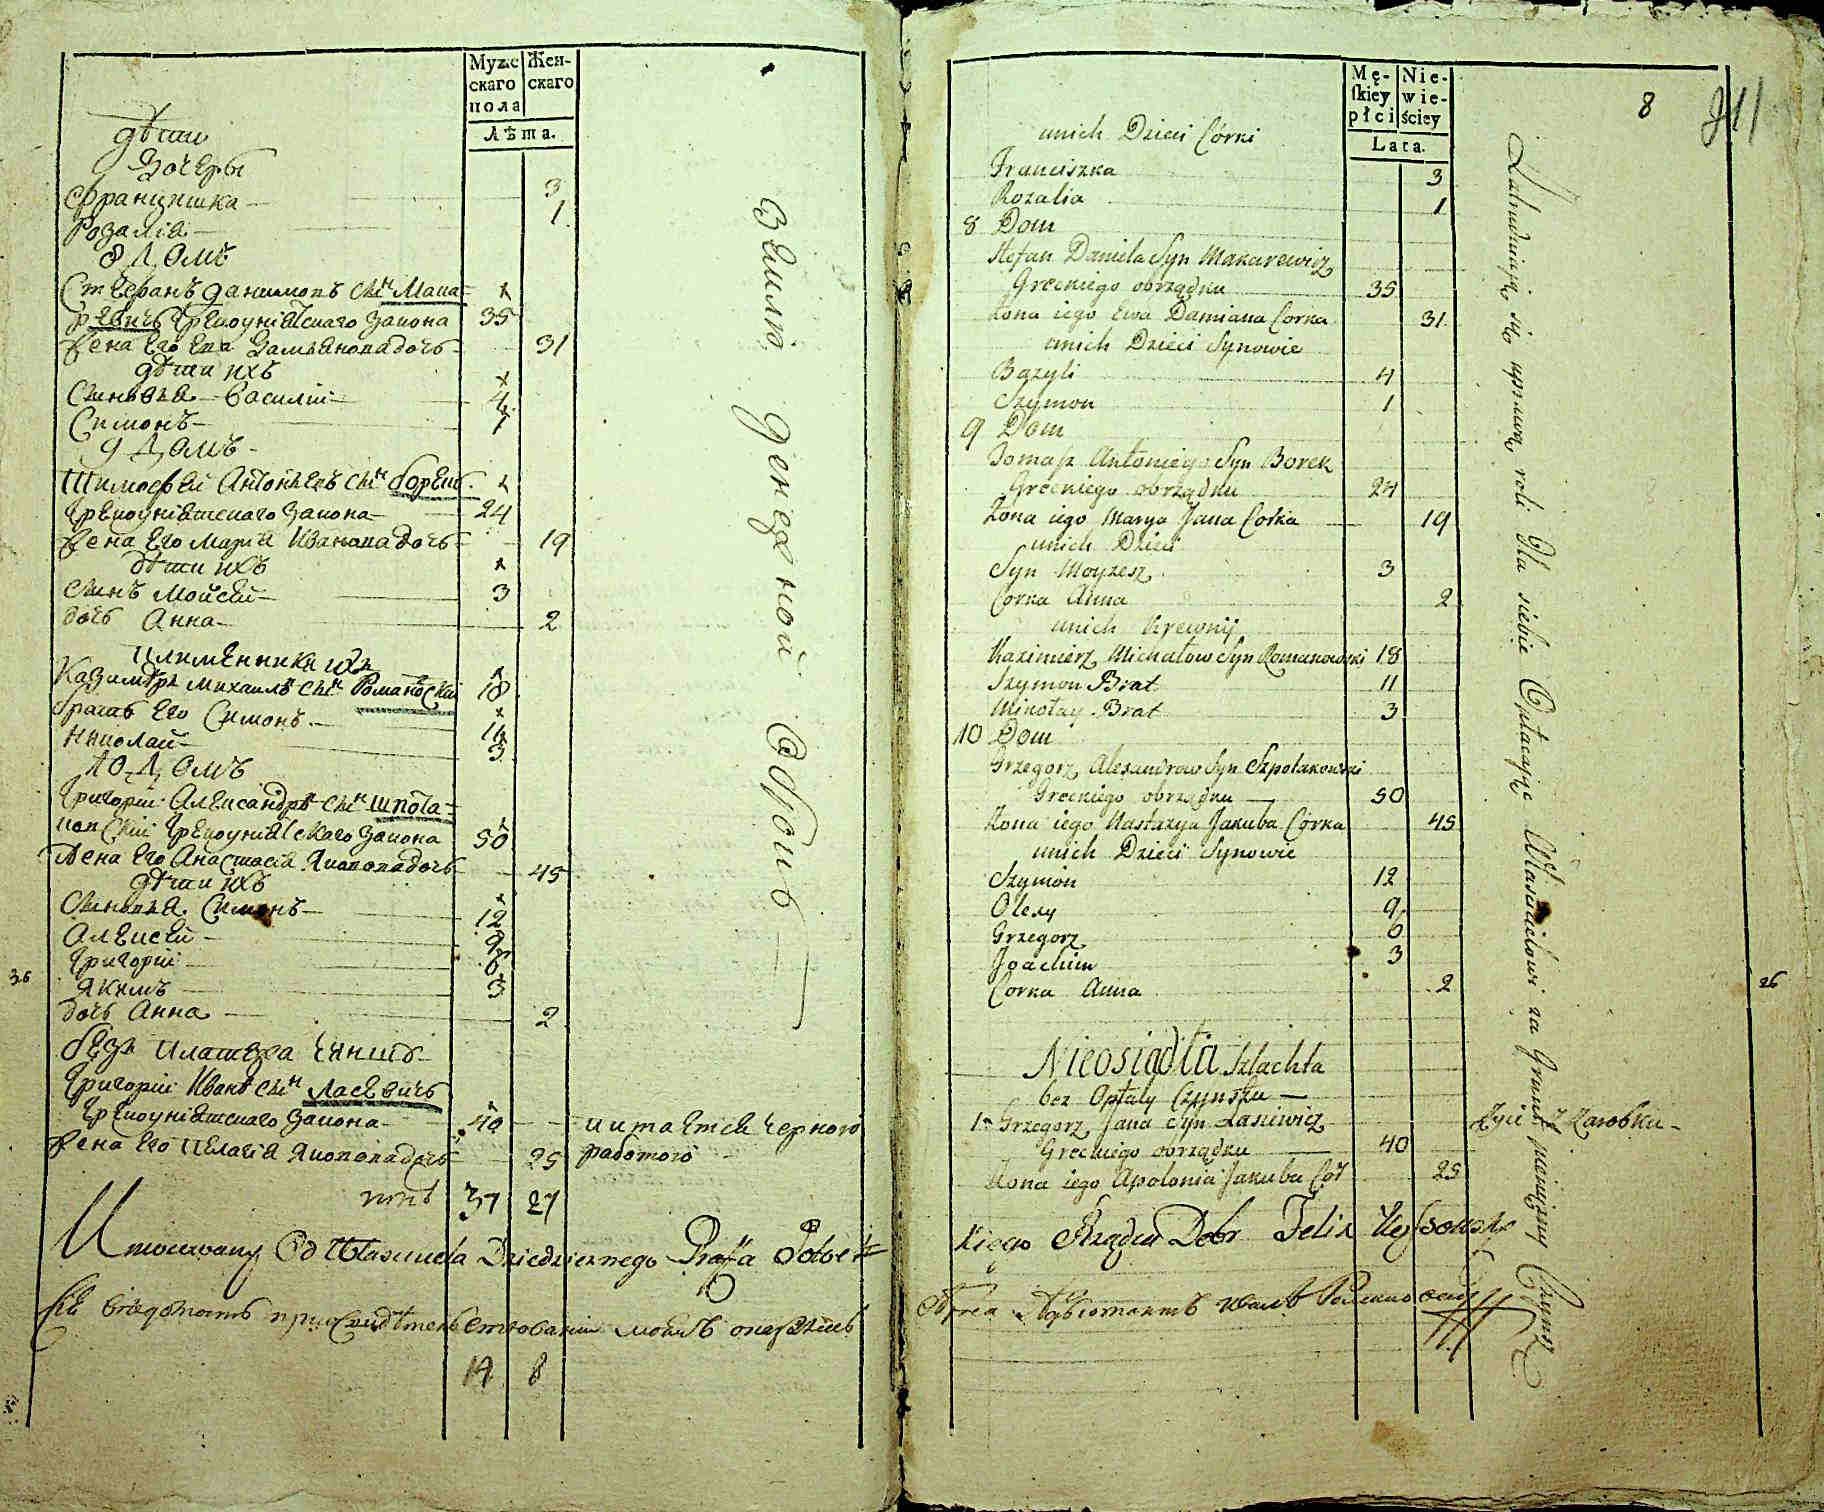 Мужескаго пола
Женскаго
Лѣта.
дѣти
Дочеры
Францишка 3
Розалія 1
8 Домъ
Стефанъ Данилювъ Сынъ Мака-
ревичъ Грекоуніятскаго Закона 35
Жена Его Ева Даміянова дочь 31
дѣти ихъ
Сыновья Василій 4
Симонъ 1
9 Домъ
Тимофей Антоніевъ Сынъ Борекъ
Грекоуніятскаго Закона 24
Жена Его Марія Иванова дочь 19
дѣти ихъ
Сынъ Мойсей 3
дочь Анна 2
племенники ихъ
Казимѣръ Михайлъ Сынъ Романовскій 18
братъ Его Симонъ 11
Николай 3
10 Домъ
Григорій Александръ Сынъ Шпота-
ковскій Грекоуніятскаго Закона 50
Жена Его Анастасія Яковова дочь 45
дѣти ихъ
Сыновья Симонъ 12
Алексей 9
Григорій 6
Якимъ 3
дочь Анна 2
безъ платежа Чиншъ
Григорій Иванъ Сынъ Ласевичъ
Грекоуніятскаго Закона 40
Жена Его Пелагія Яковова дочь 25
37 27
питается Черною
работою
Землю денежной
Umocowany Od Własciciela Dziedzicznego Grafa Potoc-
14 8
36
Mę-
skiey
płci
Nie-
wie-
ściey
Lata.
8
unich Dzieci Córki
Franciszka 3
Rozalia 1
8 Dom
Stefan Daniela Syn Makarewicz
Greckiego obrządku 35
Żona iego Ewa Damiana Corka 31
unich Dzieci Synowie
Bazyli 4
Szymon 1
9 Dom
Tomasz Antoniego Syn Borek
Greckiego obrządku 24
Żona iego Marya Jana Corka 19
unich Dzieci
Syn Moyzesz 3
Corka Anna 2
unich Krewnij
Kazimierz Michałow Syn Romanowski 18
Szymon Brat 11
Mikołay Brat 3
10 Dom
Grzegorz Alexandrow Syn Szpotakowski
Greckiego obrządku 50
Żona iego Nastazya Jakuba Córka 45
unich Dzieci Synowie
Szymon 12
Olexy 9
Grzegorz 6
Joachim 3
Corka Anna 2
Nieosiadła Szlachta
bez Opłaty Czynszu
1 Grzegorz Jana Syn Lasiewicz
Greckiego obrządku 40
Żona iego Apolonia Jakuba Cor 25
Żyie z Zarobku
kiego Rządca Dobr Felix
Zatrudniaią się uprawą roli dla siebie Opłacaiąc Właścicielowi za Grunt pieniężny Czynsz
26